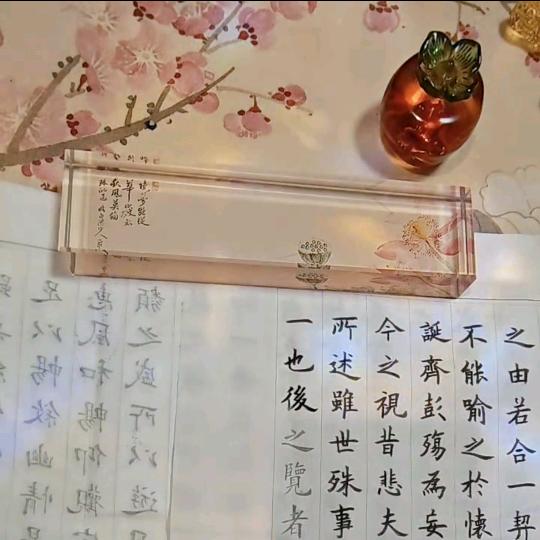 之由若合一契
不能喻之於懷
誕齊彭殤為妄
今之視昔悲夫
所述雖世殊事
一也後之覽者
類之盛所以遊
惠風和暢仰觀
足以暢敘幽情